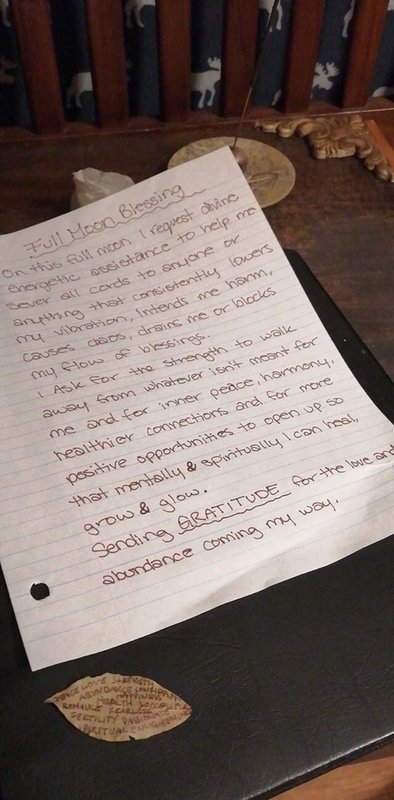 Full Moon Blessing
On this full moon I request divine
energetic assistance to help me
sever all cords to anyone or
anything that consistently lowers
my vibration, intends me harm,
causes chaos, drains me or blocks
my flow of blessings.
I Ask for the strength to walk
away from whatever isn't meant for
me and for inner peace, harmony,
healthier connections and for more
positive opportunities to open up so
that mentally & spiritually I can heal,
grow & glow.
Sending GRATITUDE for the love and
abundance coming my way.
PEACE LOVE STRENGTH
ABUNDANCE
HAPPINESS
HEALTH SUCCESS
ROMANCE
FERTILITY
SPIRITUAL